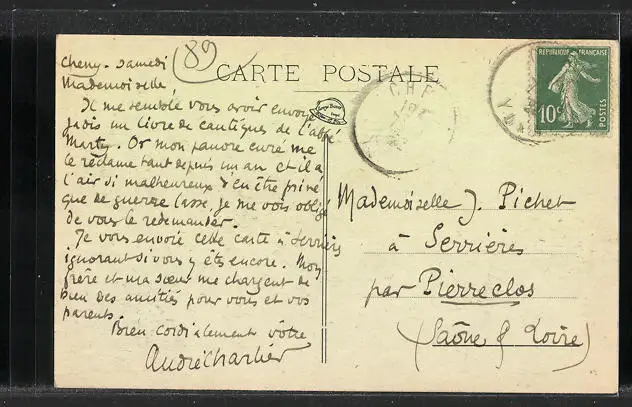 89
CARTE POSTALE
RÉPUBLIQUE FRANÇAISE
10c
POSTES
CHE
Cheny. Samedi
Mademoiselle,
Il me semble vous avoir envoyé
jadis un livre de cantiques de l'abbé
Marty. Or mon pauvre curé me
le réclame tant depuis un an et il a
l'air si malheureux d'en être privé
que de guerre lasse, je me vois obligé
de vous le redemander.
Je vous envoie cette carte à Serrières
ignorant si vous y êtes encore. Mon
frère et ma sœur me chargent de
bien des amitiés pour vous et vos
parents.
Bien cordialement vôtre
André Charlier
Mademoiselle J. Pichet
à Serrières
par Pierreclos
(Saône & Loire)